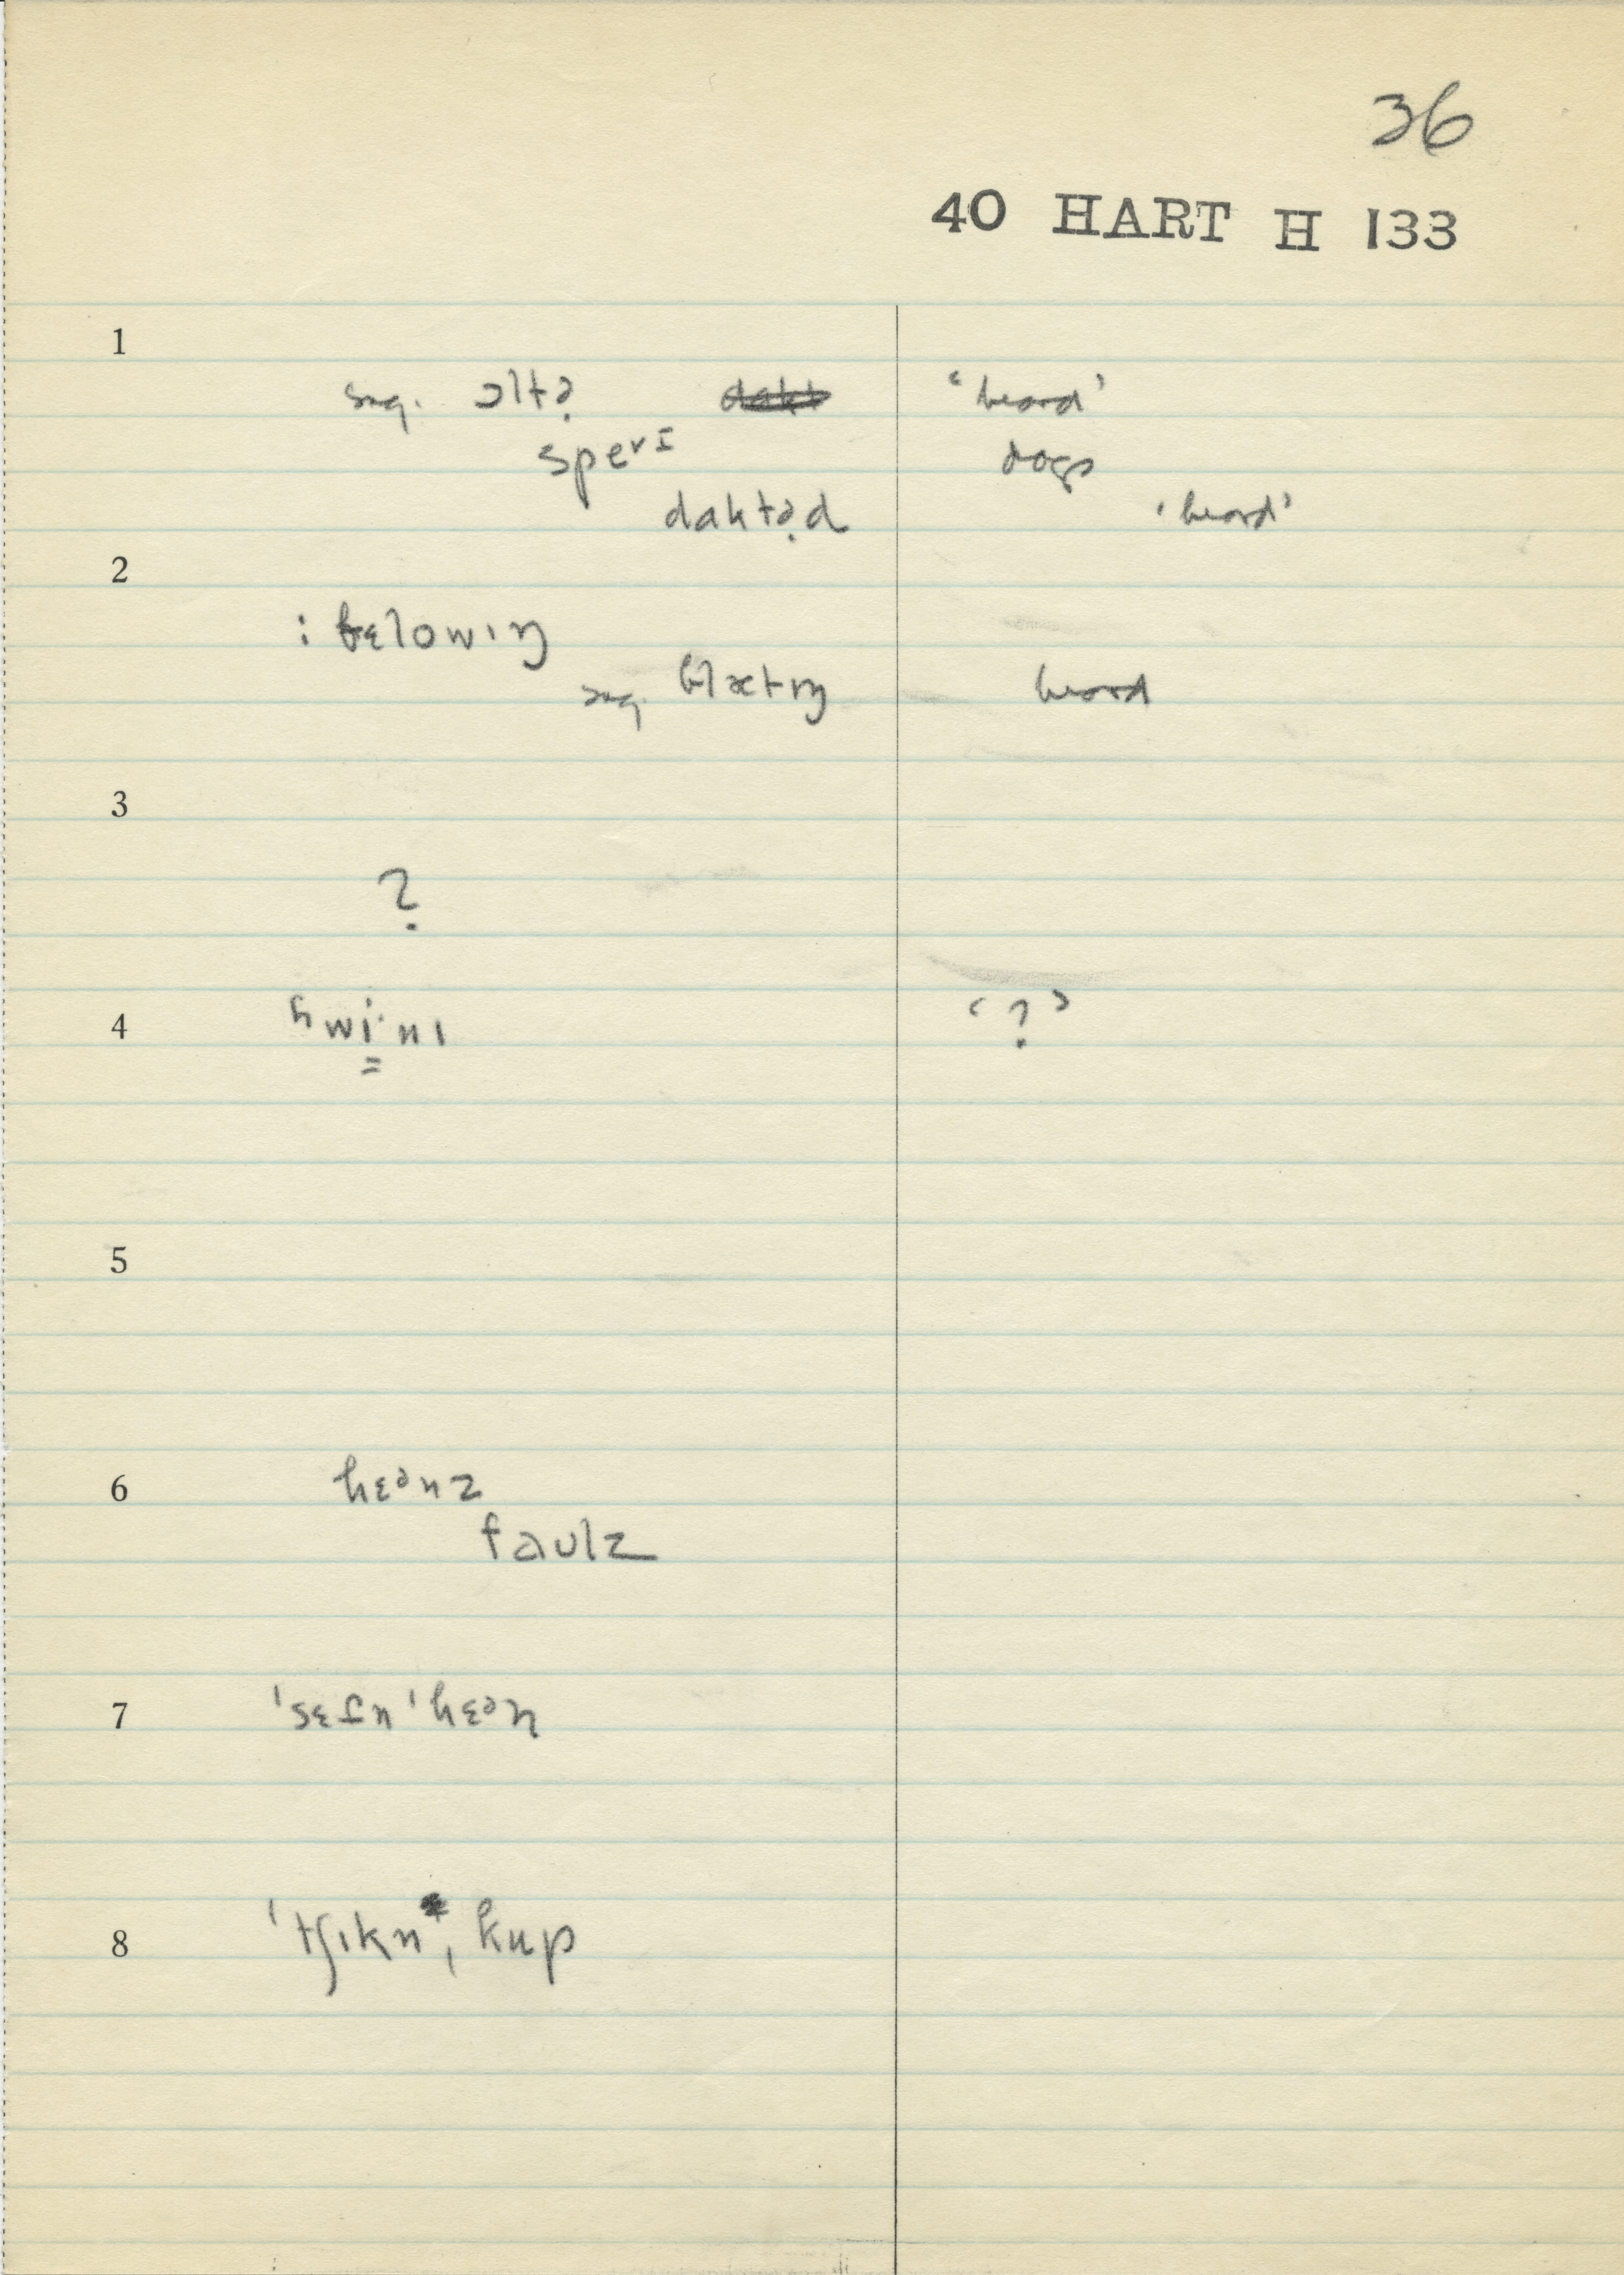 36
40 HART H 133
1
sug. ɔltə̣ ‘heard’
speɪvɪ dogs
daktə̣d ‘heard’
2
: bɛlowɪŋ
sug. blætɪŋ heard
3
?
4 hwi·nɪ ‘?’
5
6 hɛənz
faulz
7 ˈsɛfn ˈhɛən
8 ˈtʃɪkn*, kup